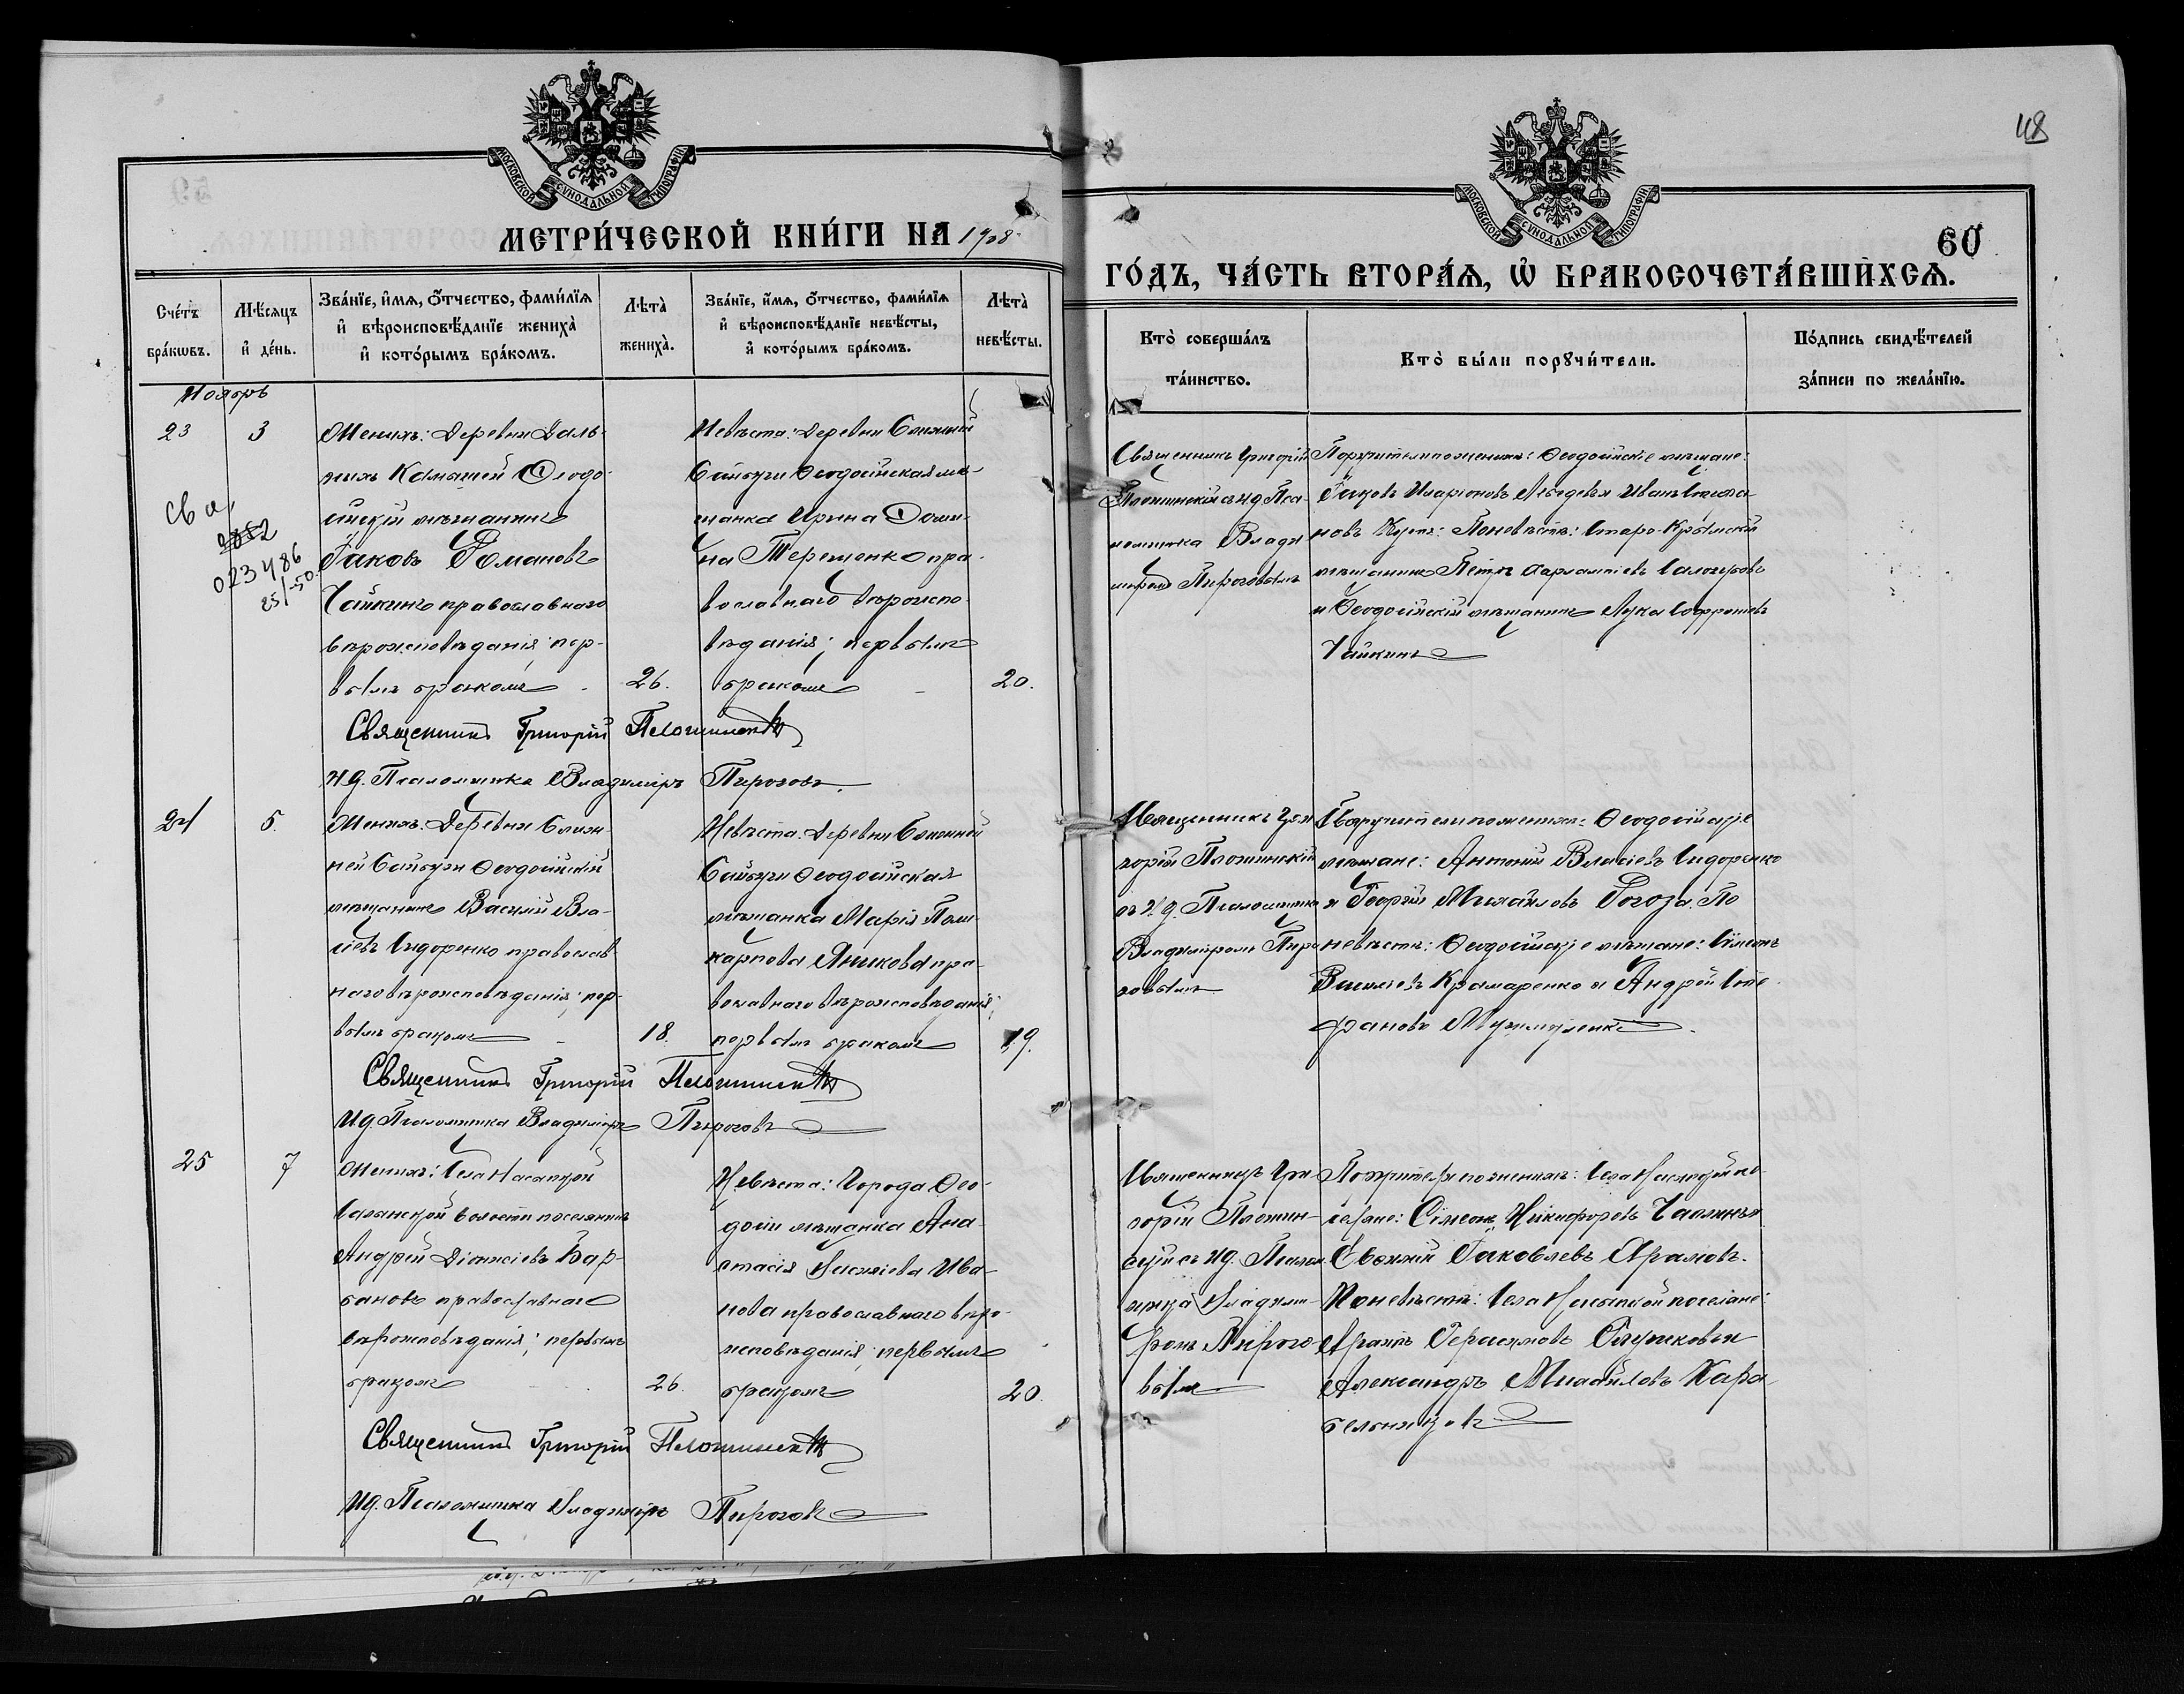 МОСКОВСКОЙ СѴНОДАЛЬНОЙ ТИПОГРАФІИ
МЕТРИ́ЧЕСКОЙ КНИ́ГИ НА 1908
Сче́тъ бра́кѡвъ.
Мѣ́сяцъ и҆ де́нь.
Зва́нїе, и҆́мя, ѻ҆́тчество, фами́лїя
и҆ вѣроисповѣ́данїе жениха̀
и҆ кото́рымъ бра́комъ.
Лѣта̀ жениха̀.
Зва́нїе, и҆́мя, ѻ҆́тчество, фами́лїя
и҆ вѣроисповѣ́данїе невѣ́сты,
и҆ кото́рымъ бра́комъ.
Лѣта̀ невѣ́сты.
Ноябрь
23
3
Женихъ: Деревни Даль-
нихъ Камышей Ѳеодо-
сійскій мѣщанинъ
Іаковъ Романовъ
Чайкинъ православнаго
вѣроисповѣданія; пер-
вымъ бракомъ
26.
Невѣста: Деревни Ближней
Байбуги Ѳеодосійская мѣ-
щанка Ирина Ѳоми-
на Терещенко пра-
вославнаго вѣроиспо-
вѣданія; первымъ
бракомъ
20.
023486
25/-50.
Священникъ Григорій
И.д. Псаломщика Владиміръ Пироговъ
24
5.
Женихъ: Деревни Ближ-
ней Байбуги Ѳеодосійскій
мѣщанинъ Василій Вла-
сіевъ Сидоренко православ-
наго вѣроисповѣданія; пер-
вымъ бракомъ
18.
Невѣста: Деревни Ближней
Байбуги Ѳеодосійская
мѣщанка Марія Поли-
карпова Яникова пра-
вославнаго вѣроисповѣданія;
первымъ бракомъ
19.
Священникъ Григорій
И.д. Псаломщика Владиміръ Пироговъ
25
7
Женихъ: Села Насыпкой
Салынской волости поселянинъ
Андрей Діонисіевъ Бар-
бановъ православнаго
вѣроисповѣданія; первымъ
бракомъ
26.
Невѣста: Города Ѳео-
досіи мѣщанка Ана-
стасія Ива-
нова православнаго вѣро-
исповѣданія; первымъ
бракомъ
20.
Священникъ Григорій
И.д. Псаломщика Владиміръ Пироговъ
48
МОСКОВСКОЙ СѴНОДАЛЬНОЙ ТИПОГРАФІИ
60
ГО́ДЪ, ЧА́СТЬ ВТОРА́Я, Ѡ҆ БРАКОСОЧЕТА́ВШИХСЯ.
Кто̀ соверша́лъ
та́инство.
Кто̀ бы́ли порꙋчи́тели.
По́дпись свидѣ́телей
за́писи по жела́нїю.
Священникъ Григорій
съ и.д. Пса-
ломщика Влади-
міромъ Пироговымъ
Поручители по женихѣ: Ѳеодосійскіе мѣщане:
Іаковъ Иларіоновъ Лебедевъ и Иванъ Стефа-
новъ По невѣстѣ: Старо-Крымскій
мѣщанинъ Петръ
и Ѳеодосійскій мѣщанинъ Лука Софроніевъ
Чайкинъ
Священникъ Гри-
горій
съ И.д. Псаломщика
Владиміромъ Пиро-
говымъ
Поручители по женихѣ: Ѳеодосійскіе
мѣщане: Антоній Власіевъ Сидоренко
и Георгій Михайловъ Рогоза. По
невѣстѣ: Ѳеодосійскіе мѣщане: Симеонъ
Василіевъ Крамаренко и Андрей Сте-
фановъ
Священникъ Гри-
горій
съ И.д. Псалом-
щика Владими-
ромъ Пирого-
вымъ
Поручители по женихѣ: Села Насыпкой по-
селяне: Симеонъ Никифоровъ и
Евгеній Іаковлевъ
По невѣстѣ: Села Насыпкой поселяне:
Герасимовъ
Александръ Михайловъ Кара-
бельниковъ